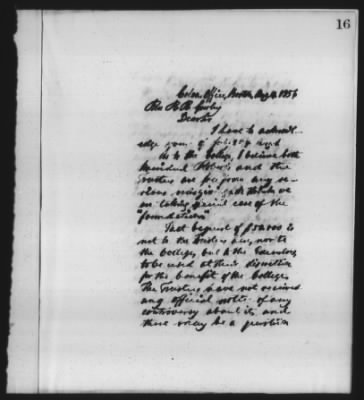 16
Colon. Office, Boston, Aug 1856
Rev R. R. Gurley
Dear Sir
I have to acknowl-
edge yours of
As to the College, I believe both
President Roberts and the
are from any se-
rious
we are taking special care of the
"foundation"
That bequest of $50000 is
not to the Trustees here, nor to
the College, but to the Executors,
to be used at their discretion
for the benefit of the College.
The Trustees have not received
any official notice of any
controversy about it, and
there may be a question